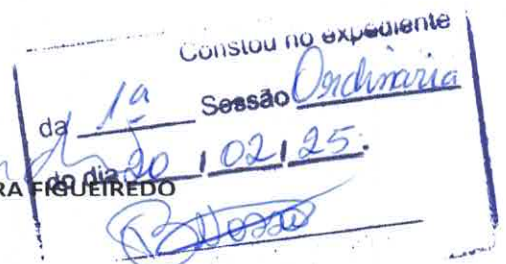 Constou no expediente
da 1ª Sessão Ordinaria
do dia 20 / 02 / 25.
RA FIGUEIREDO